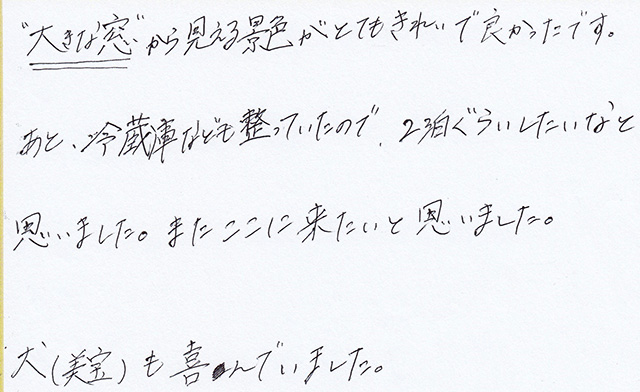 "大きな窓"から見える景色がとてもきれいで良かったです。
あと、冷蔵庫なども整っていたので、2泊ぐらいしたいなと
思いました。またここに来たいと思いました。
犬(美宝)も喜んでいました。